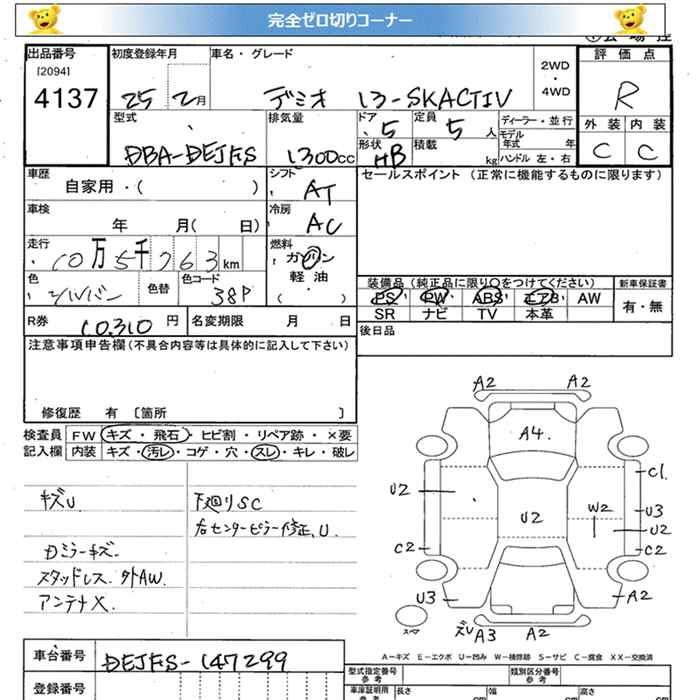 完全ゼロ切りコーナー
出品番号 初度登録年月 車名・グレード 2WD・4WD 評価点
[2094]
4137 25 2月 デミオ 13-SKACTIV R
型式 排気量 ドア 定員 ディーラー・並行 外装 内装
DBA-DEJFS 1300cc 5 5人 モデル年式 年 C C
形状 HB 積載 kg ハンドル 左・右
車歴 シフト セールスポイント (正常に機能するものに限ります)
自家用・( ) AT
車検 冷房
年 月( 日) AC
走行 燃料
10万5千763km ガソリン
軽油
( )
色 色替 色コード
シルバー 38P
装備品 (純正品に限り○をつけてください) 新車保証書
PS PW ABS エアB AW 有・無
SR ナビ TV 本革
R券 10,310円 名変期限 月 日
後日品
注意事項申告欄(不具合内容等は具体的に記入して下さい)
修復歴 有 [箇所 ]
検査員記入欄 FW キズ・飛石・ヒビ割・リペア跡・×要
内装 キズ・汚レ・コゲ・穴・スレ・キレ・破レ
キズU 下廻りSC
右センターピラー修正、U.
Dミラーキズ.
スタッドレス. 外AW.
アンテナX.
A2 A2
A4
U2 C1
W2 U3
U2 U2
C2 C2
U3 A2
スペア ズU A3 A2
A−キズ E−エクボ U−凹み W−補修跡 S−サビ C−腐食 XX−交換済
車台番号 DEJFS-147299
型式指定番号 参考 類別区分番号 参考
登録番号
車庫証明用 参考 長さ cm 幅 cm 高さ cm